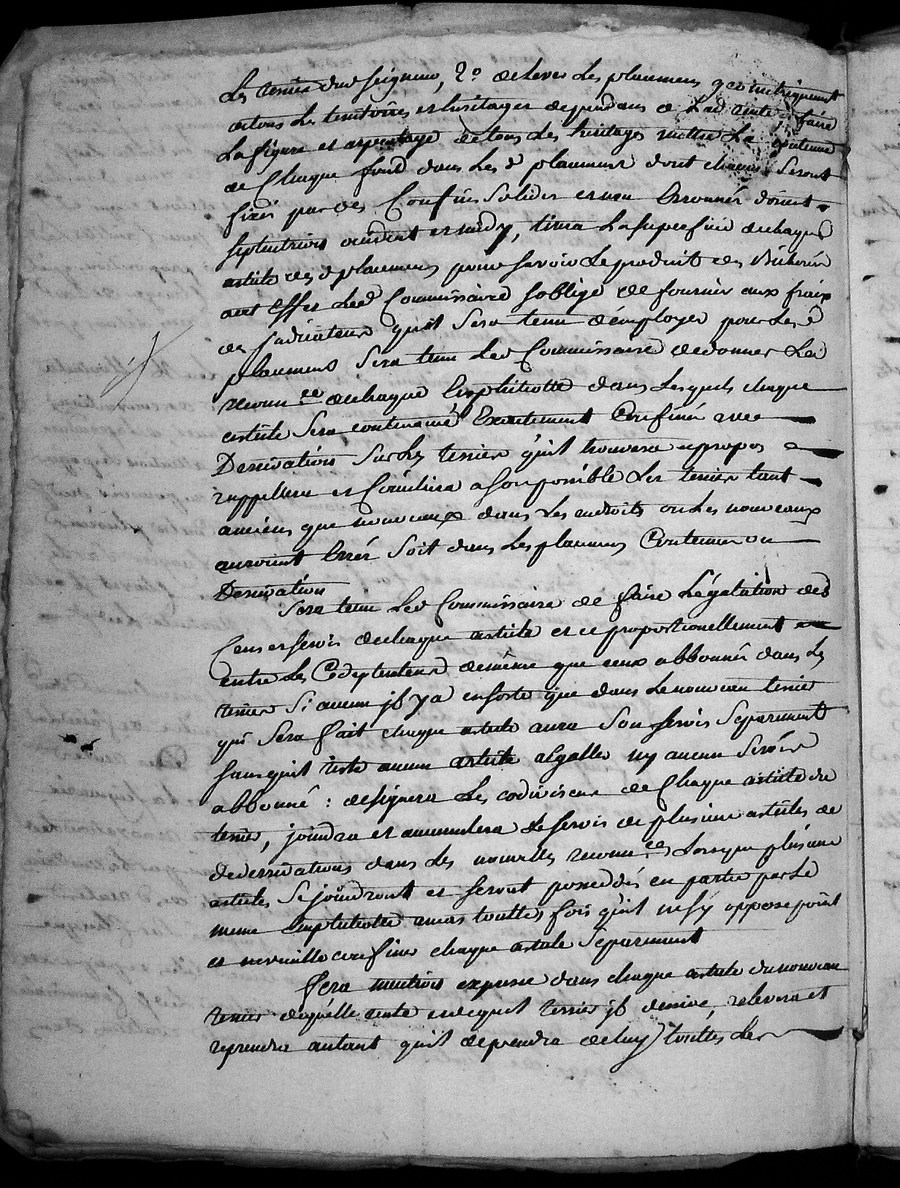 Les terriers dud seigneur, 2° de lever les planmens geometriquement
de tous les territoires et heritages dependans de lad rente, faire
la figure et arpentage de tous les heritages mettre la contenue
de chaque fond dans lesd planmens dont chacun seront
fixés par des confins solides et non erronnés orient
septentrion occident et midy, tirera la superficie de chaque
article desd planmens pour savoir le produit des bicherées
a cet effet led Commissaire soblige de fournir aux fraix
des jndicateurs quil sera tenu demployer pour lesd
planmens sera tenu led Commissaire de donner la
reconnce de chaque Emphitiotte dans lesquels chaque
article sera contenancé exactement confiné avec
Derivation sur les terriers quil trouvera apropos
rappellera et conciliera a son possible les terriers tant
anciens que nouveaux dans les endroits ou les nouveaux
auroient erré soit dans les planmens contenue ou
Derivation
Sera tenu led Commissaire de faire légalation des
Cens et servis de chaque article et ce proportionellement
entre les Codetenteurs de même que ceux abbonnés dans les
terriers si aucun jl y a ensorte que dans le nouveau terrier
qui sera fait chaque article aura son servis séparément
sans quil reste aucun article a légaller ny aucun servis
abbonné : designera les codiviseurs de chaque article du
terrier, joindra et accumulera le servis de plusieurs articles de
de derivations dans les nouvelles reconnces lorsque plusieurs
articles se joindront et seront possedés en partie par le
meme emphitiotte amas touttes fois quil ne sy oppose point
et ne veuille confiner chaque article séparement
Fera mention expresse dans chaque article du nouveau
terrier de quelle rente et de quel terrier jl derive, relevera et
reprendra autant quil dependra de luy touttes les